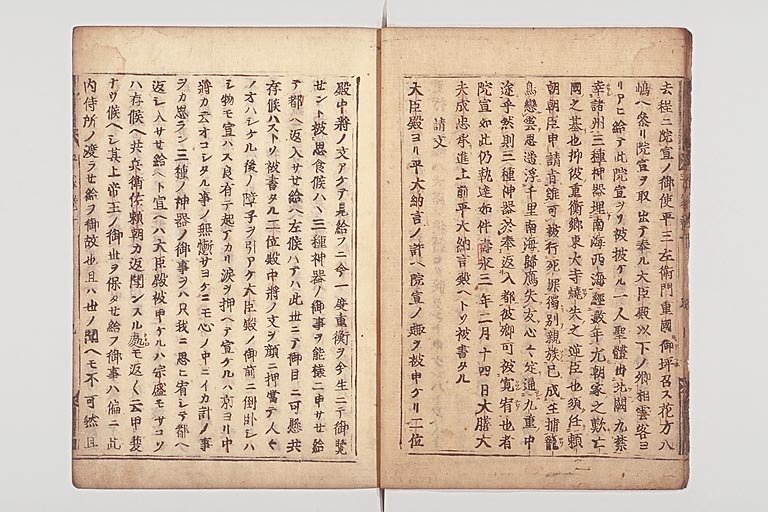 去程ニ院宣ノ御使平三左衛門重國御坪召ス花方八
嶋ヘ參リ院宣ヲ取出テ奉ル大臣殿以下ノ卿相雲客ヨ
リアヒ給テ此院宣ヲソ被披ケル一人聖體出北闕九禁
幸諸州三種神器埋南海西海經數年尤朝家之歎亡
國之基也抑彼重衡卿東大寺燒失之逆臣也須任頼
朝朝臣申請旨雖可被行死罪獨別親族已成生捕籠
鳥戀雲思遙浮千里南海歸鴈失友心々定通九重中
途乎然則三種神器於奉返入都彼卿可被寛宥也者
院宣如此仍執達如件壽永三年二月十四日大膳大
夫成忠承進上前平大納言殿ヘトソ被書タル
請文
大臣殿ヨリ平大納言ノ許ヘ院宣ノ趣ヲ被申ケリ二位
殿中將ノ文アケテ見給フニ今一度重衡ヲ今生ニテ御覧
セント被思食候ハヽ三種神器ノ御事ヲ能様ニ申サセ給
テ都ヘ返入サセ給ヘ左候ハテハ此世ニテ御目ニ可懸共
存候ハストソ被書タル二位殿中將ノ文ヲ顔ニ押當テ人々
ノオハシケル後ノ障子ヲ引アケテ大臣殿ノ御前ニ倒臥シハ
シ物モ宣ハス良有テ起アカリ涙ヲ押ヘテ宣ケルハ京ヨリ中
將カ云オコシタル事ノ無慙サヨケニモ心ノ中ニイカ計ノ事
ヲカ思ラン三種ノ神器ノ御事ヲハ只我ニ思ヒ宥シテ都ヘ
返シ入サセ給ヘト宣ヘハ大臣殿被申ケルハ宗盛モサコソ
ハ存候ヘ共兵衛佐頼朝カ返聞ンスル處モ返々云甲斐
ナウ候ヘシ其上帝王ノ御世ヲ保タセ給フ御事ハ偏ニ此
内侍所ノ渡ラセ給フ御故也且ハ世ノ聞ヘモ不可然且